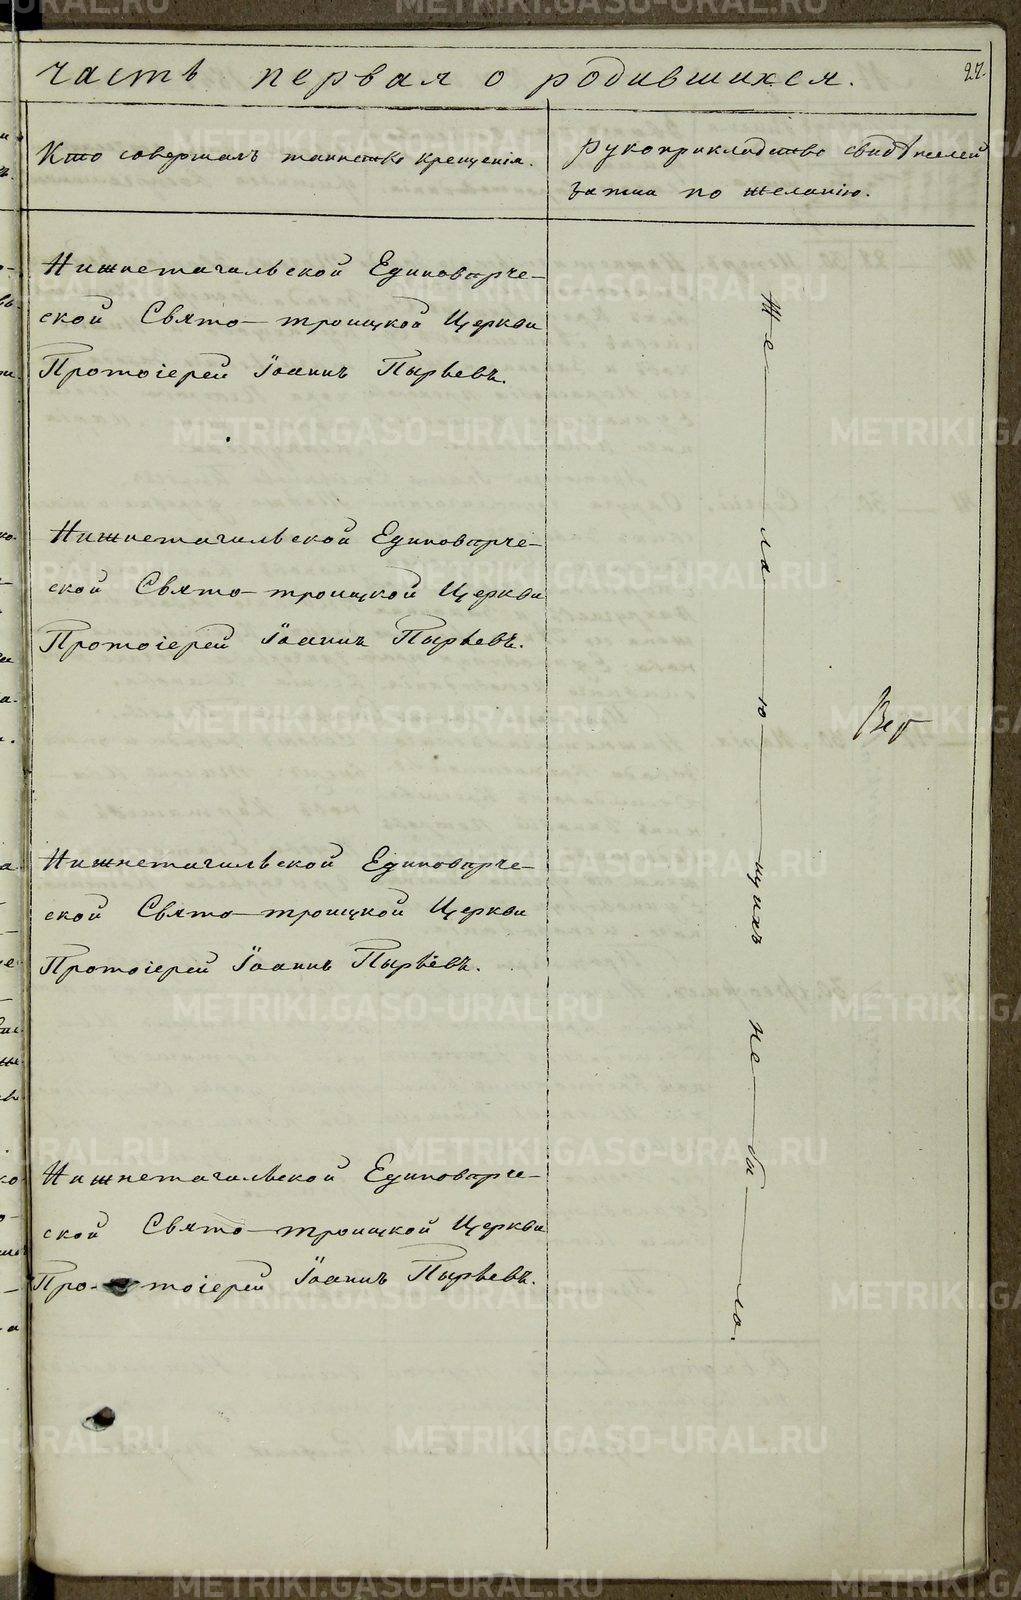 часть первая о родившихся.
22.
Кто совершалъ таинство крещенія.
рукоприкладство свидѣтелей
записи по желанію.
Нижнетагильской Единовѣрче-
ской Свято-троицкой Церкви
Протоіерей Іоаннъ Пырьевъ.
Нижнетагильской Единовѣрче-
ской Свято-троицкой Церкви
Протоіерей Іоаннъ Пырьевъ.
Нижнетагильской Единовѣрче-
ской Свято-троицкой Церкви
Протоіерей Іоаннъ Пырьевъ.
Нижнетагильской Единовѣрче-
ской Свято-троицкой Церкви
Про-тоіерей Іоаннъ Пырьевъ.
Же-ла-ю-щихъ не-бы-ло.
METRIKI.GASO-URAL.RU